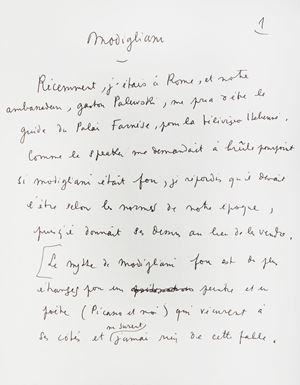 1
Modigliani
Récemment, j'étais à Rome, et notre
ambassadeur, gaston Palewski, me pria d'être le
guide du Palai Farnèse, pour la télévision Italienne.
Comme le speaker me demandait à brûle pourpoint
si modigliani était fou, je répondis qu'il devait
l'être selon les normes de notre époque,
puisqu'il donnait ses dessins au lieu de les vendre.
[Le mythe de modigliani fou est des plus
étranges pour un peintre et un
poète (Picasso et moi) qui vécurent à
ses côtés et ne surent jamais rien de cette fable.